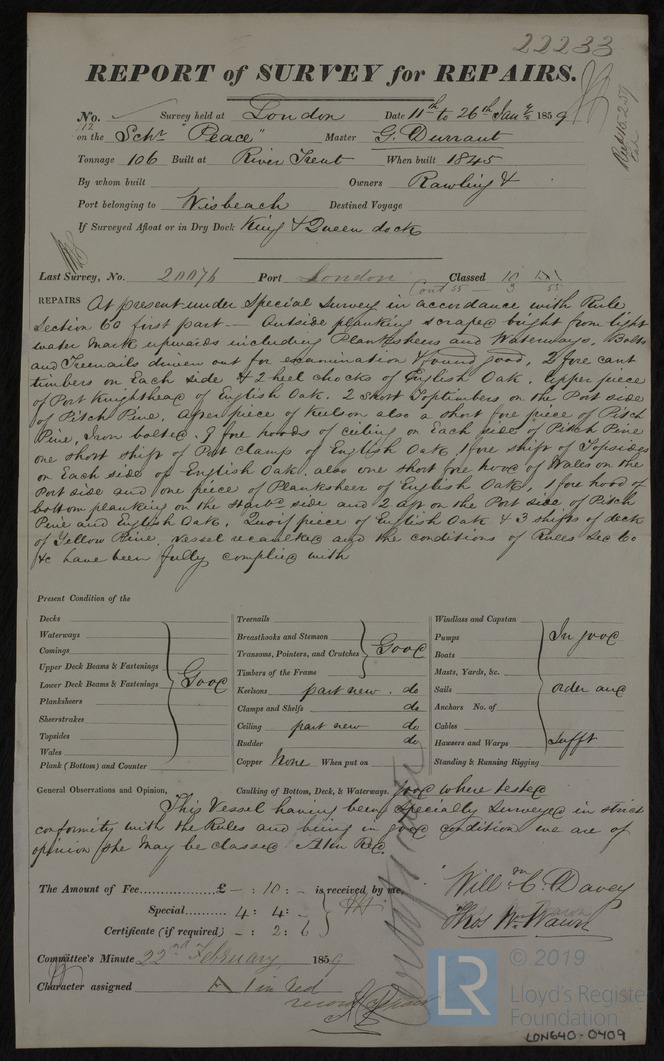 22233
REPORT of SURVEY for REPAIRS.
No. Survey held at London Date 11th to 26th Jany 1859
12
on the Schr "Peace" Master G. Durrant
Tonnage 106 Built at River Trent When built 1845
By whom built Owners Rawling &
Port belonging to Wisbeach Destined Voyage
If Surveyed Afloat or in Dry Dock King & Queen dock
Last Survey, No. 20076 Port London Classed 10 A1
Cont 55 3 55
REPAIRS At present under Special Survey in accordance with Rule
Section 60 first part - Outside planking scraped bright from light
water mark upwards including Planksheers and Waterways, Bolts
and Treenails driven out for examination & found good, 2 fore cant
timbers on Each side & 2 heel chocks of English Oak. Upper piece
of Port Knighthead of English Oak. 2 Short Toptimbers on the Port side
of Pitch Pine, after piece of Keelson also a short fore piece of Pitch
Pine, Iron bolted. 9 fore hoods of ceiling on Each side of Pitch Pine
one short shift of Port Clamps of English Oak, 1 fore shift of Topsides
on Each side of English Oak. also one short fore hood of Wales on the
Port side and one piece of Planksheer of English Oak, 1 fore hood of
bottom planking on the Starbd side and 2 aft on the Port side of Pitch
Pine and English Oak. piece of English Oak & 3 shifts of deck
of Yellow Pine. Vessel recaulked and the conditions of Rules Sec 60
&c have been fully complied with
Present Condition of the
Decks
Waterways
Comings
Upper Deck Beams & Fastenings
Lower Deck Beams & Fastenings Good
Planksheers
Sheerstrakes
Topsides
Wales
Plank (Bottom) and Counter
Treenails
Breasthooks and Stemson
Transoms, Pointers, and Crutches Good
Timbers of the Frame
Keelsons part new . do
Clamps and Shelfs do
Ceiling part new do
Rudder do
Copper None When put on
Windlass and Capstan
Pumps In good
Boats
Masts, Yards, &c.
Sails order and
Anchors No. of
Cables
Hawsers and Warps Sufft
Standing & Running Rigging
General Observations and Opinion, Caulking of Bottom, Deck, & Waterways. good where tested
This Vessel having been Specially Surveyed in strict
conformity with the Rules and being in good condition we are of
opinion she may be classed A1 in Red.
The Amount of Fee £ - : 10 : - is received by me,
Special 4 : 4 : -
Certificate (if required) - : 2 : 6
Willm C. Davey
Thos Wm Wawn
Committee's Minute 22nd February 1859
Character assigned A 1 in Red
LR
© 2019
Lloyd's Register
Foundation
LON640-0409